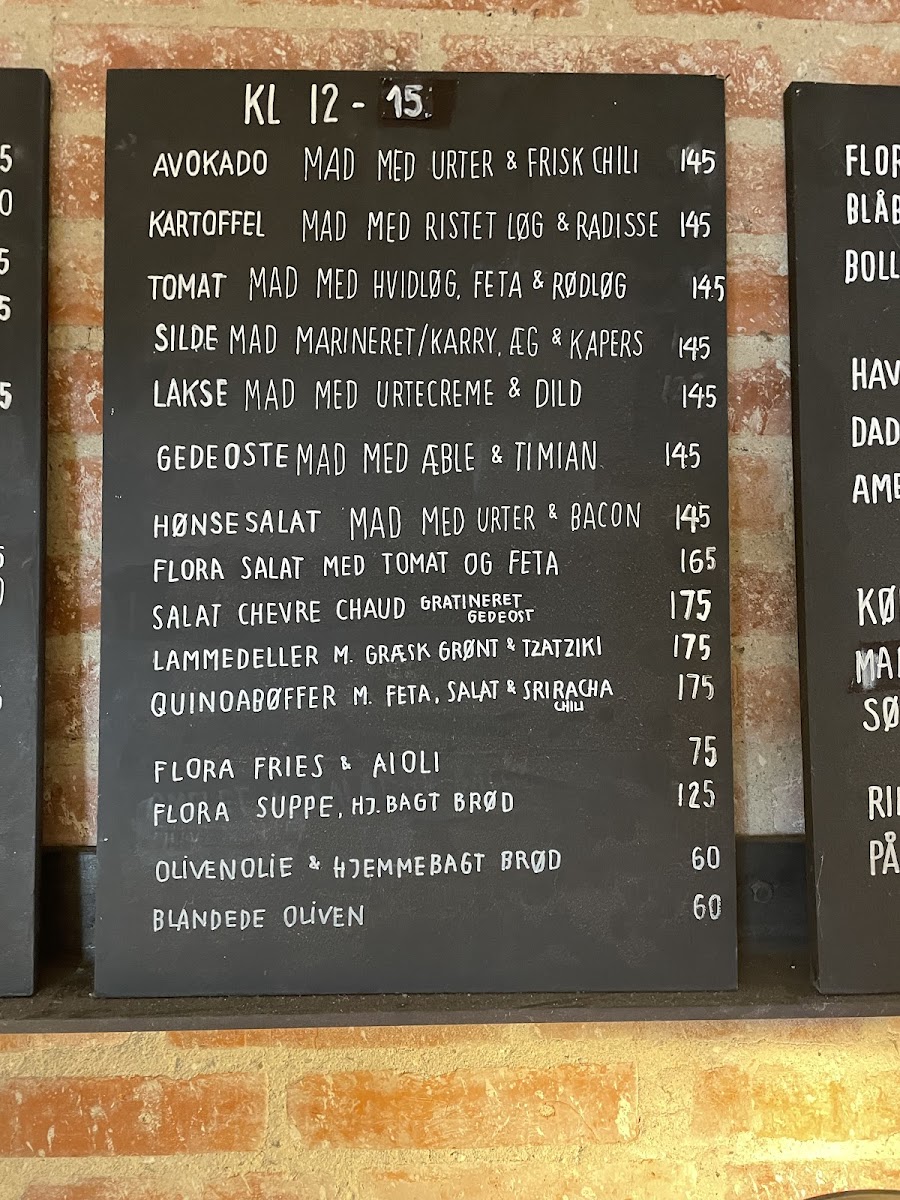 KL 12 - 15
AVOKADO MAD MED URTER & FRISK CHILI 145
KARTOFFEL MAD MED RISTET LØG & RADISSE 145
TOMAT MAD MED HVIDLØG, FETA & RØDLØG 145
SILDE MAD MARINERET/KARRY, ÆG & KAPERS 145
LAKSE MAD MED URTECREME & DILD 145
GEDEOSTE MAD MED ÆBLE & TIMIAN 145
HØNSESALAT MAD MED URTER & BACON 145
FLORA SALAT MED TOMAT OG FETA 165
SALAT CHEVRE CHAUD GRATINERET GEDEOST 175
LAMMEDELLER M. GRÆSK GRØNT & TZATZIKI 175
QUINOABØFFER M. FETA, SALAT & SRIRACHA CHILI 175
FLORA FRIES & AIOLI 75
FLORA SUPPE, HJ. BAGT BRØD 125
OLIVENOLIE & HJEMMEBAGT BRØD 60
BLANDEDE OLIVEN 60
FLOR
BLÅB
BOLL
HAV
DAD
AME
KØ
MA
SØ
RI
PÅ